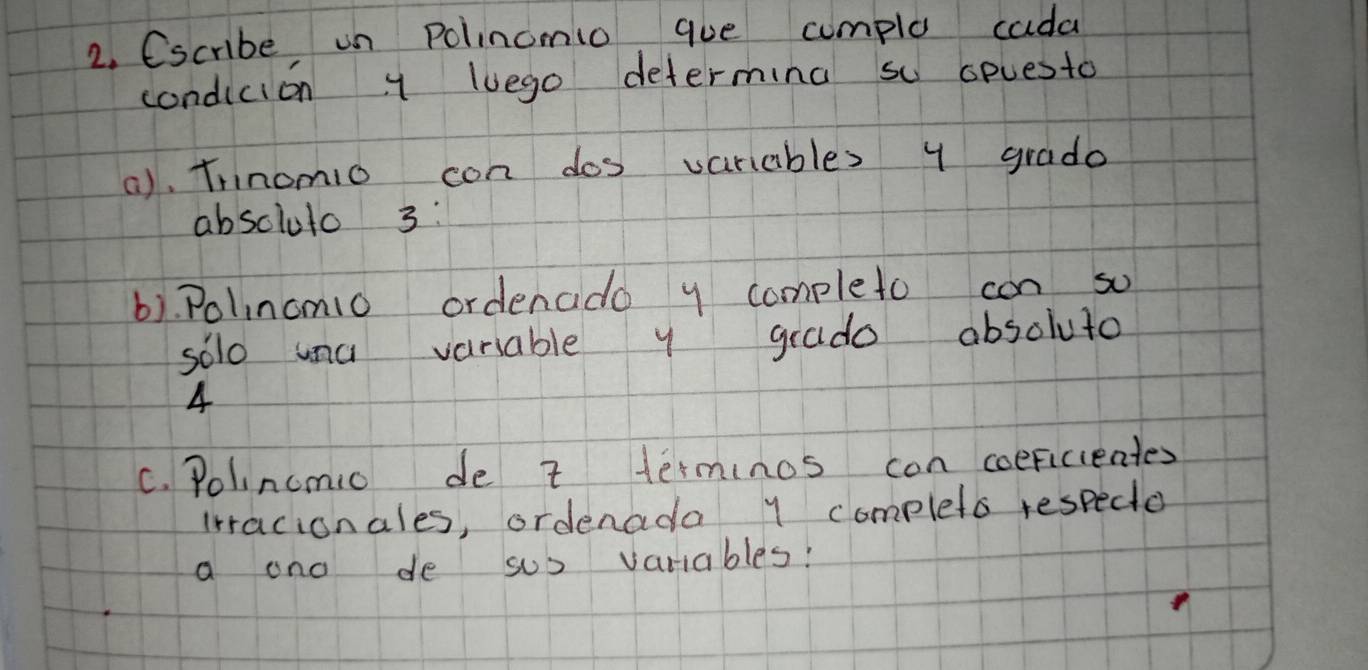 2. Escribe, un Polinomio que cumpla cada
condición y luego determina su opuesto
a). Trinomio con dos variables y grado
absoluto 3:
b). Polinomio ordenado y completo con su
sólo una variable y grado absoluto
4
c. Polinomio de 7 términos con coeficientes
irracionales, ordenada y completo respecto
a una de sus variables: